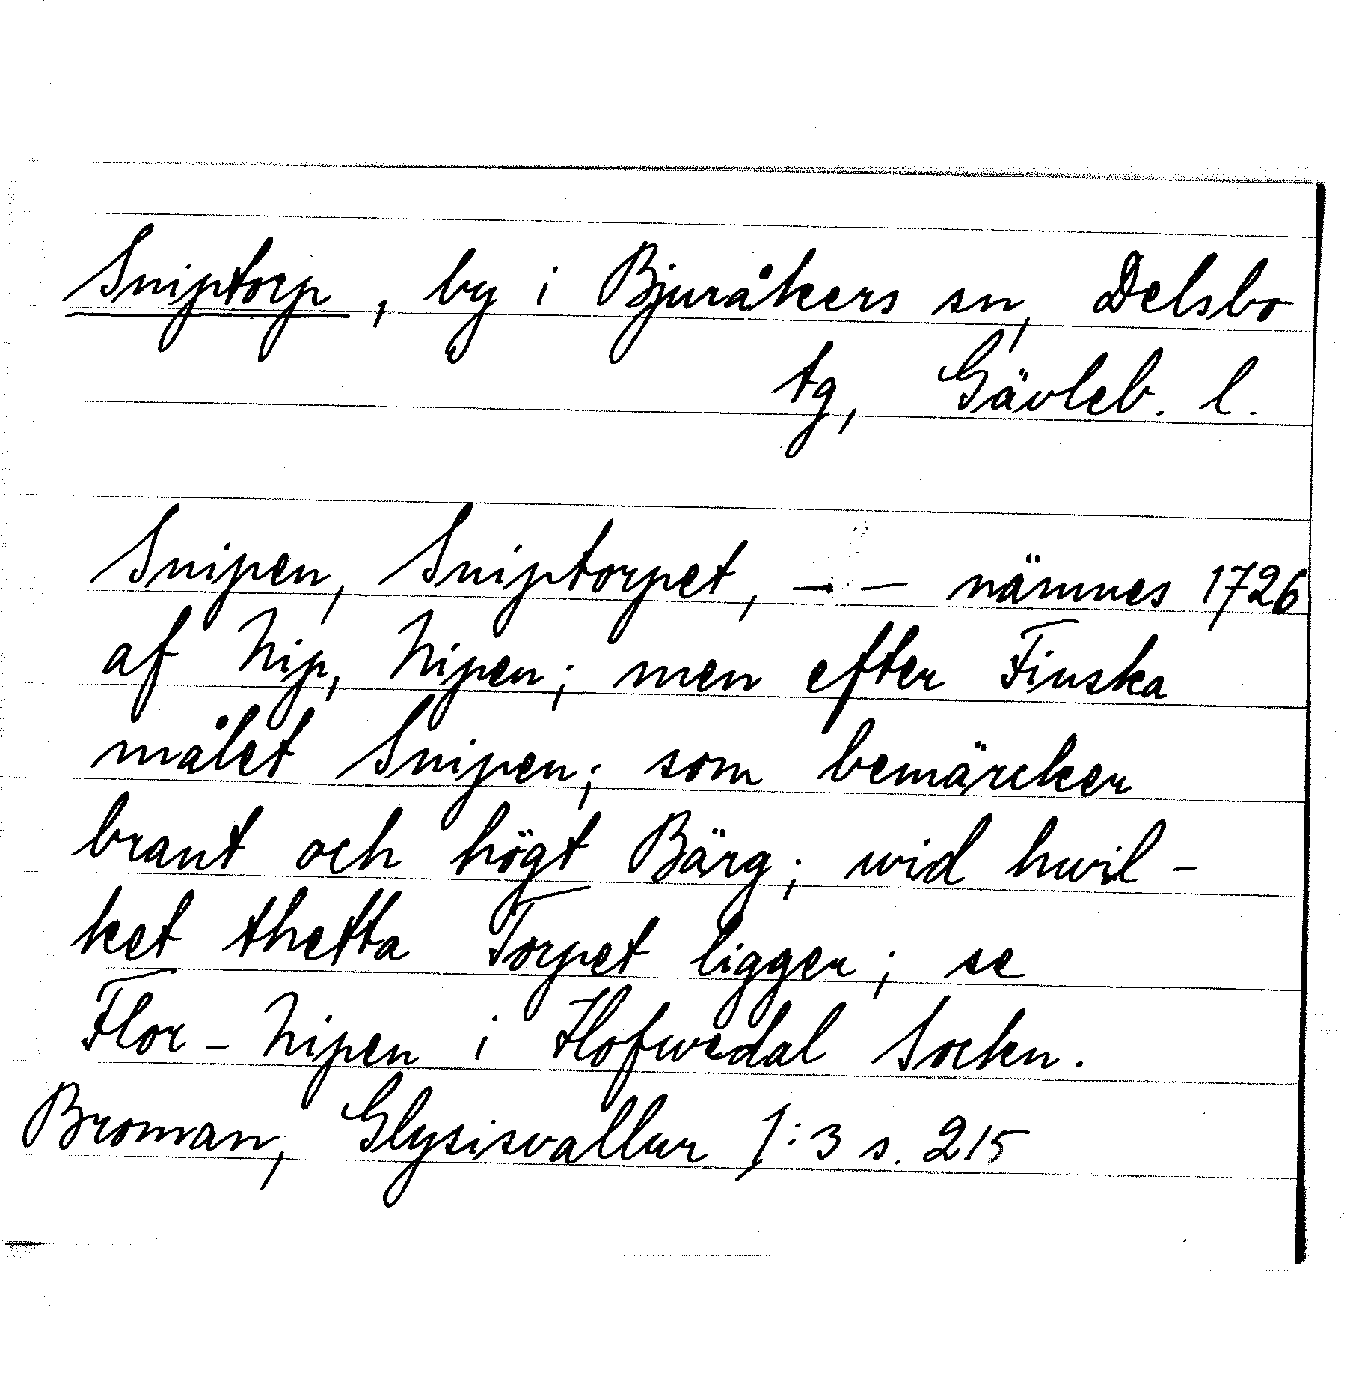 Sniptorp, by i Bjuråkers sn, Delsbo
tg, Gävleb. l.
Snipen, Sniptorpet, — — nämnes 1726
af Nip, Nipen; men efter Finska
målet Snipen; som bemärcker
brant och högt Bärg; wid hwil-
ket thetta Torpet ligger; se
Flor-Nipen i Hofwedal Sockn.
Broman, Glysisvallur 1:3 s. 215